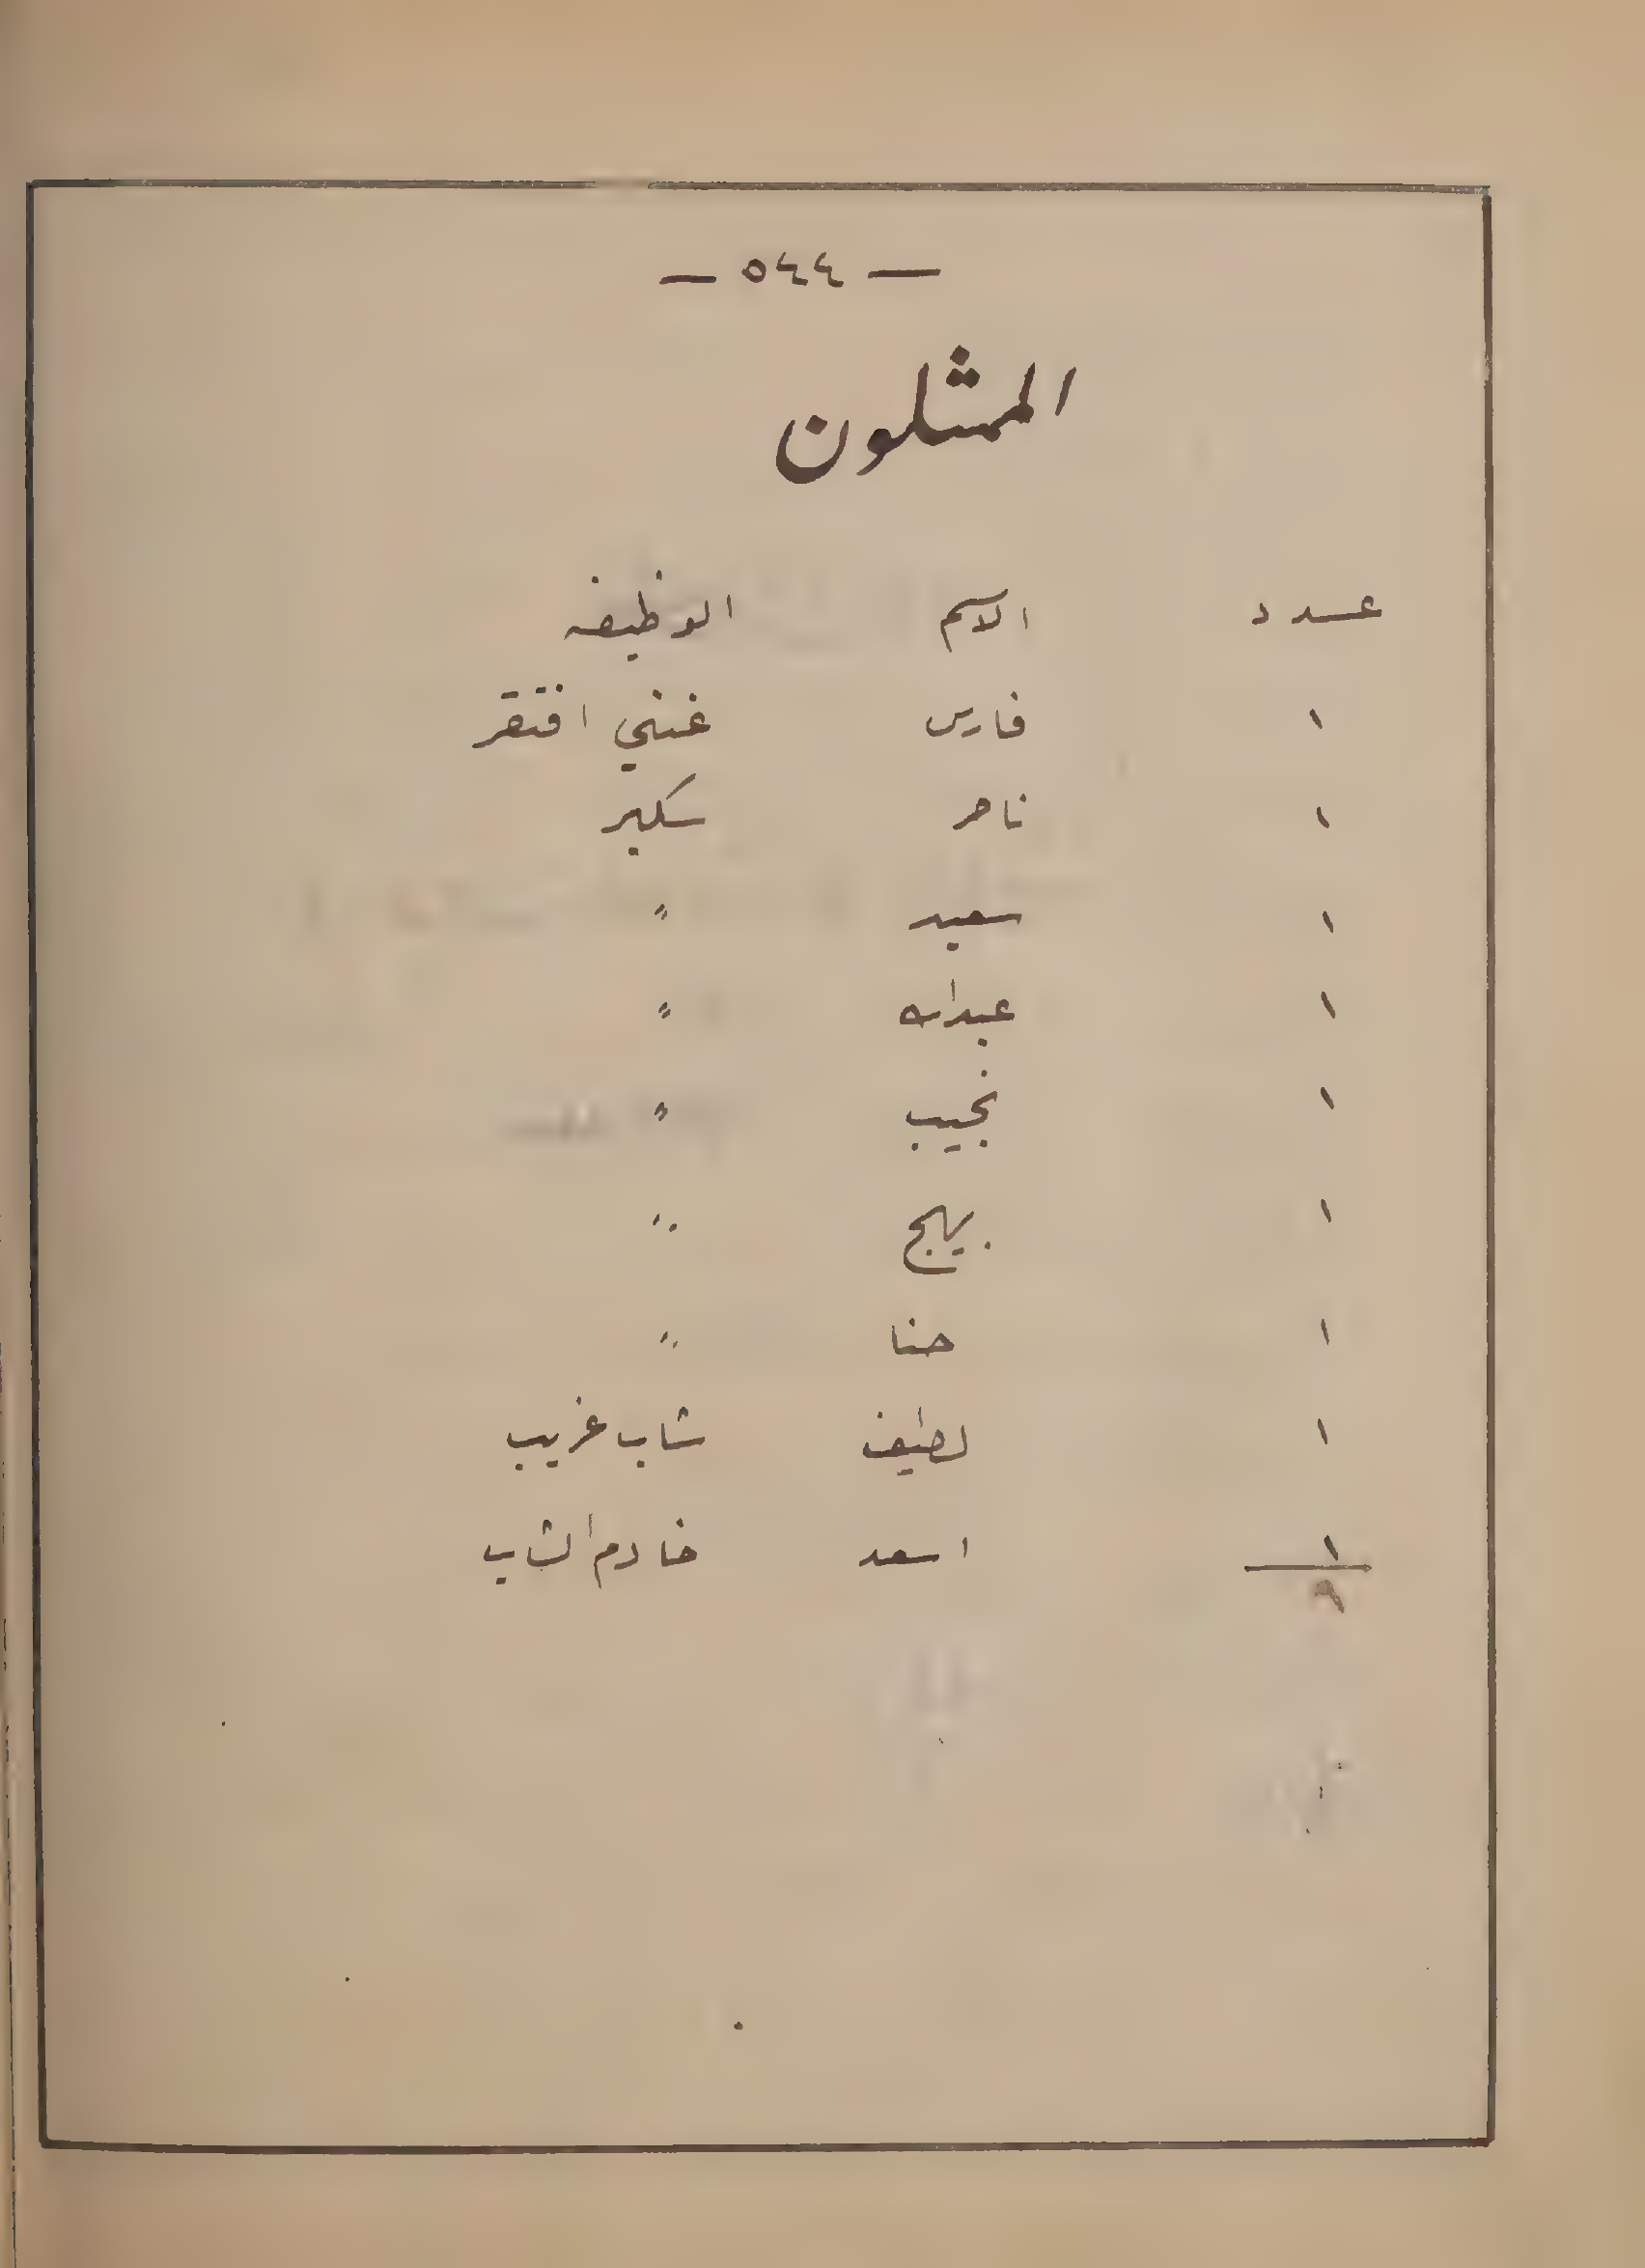 — ٥٤٤ —
الممثلون
عدد الاسم الوظيفه
١ فارس غني افتقر
١ ناصر سكير
١ سعيد "
١ عبدالله "
١ نجيب "
١ بهيج "
١ حنا "
١ لطيف شاب غريب
١ اسعد خادم الشاب
٩